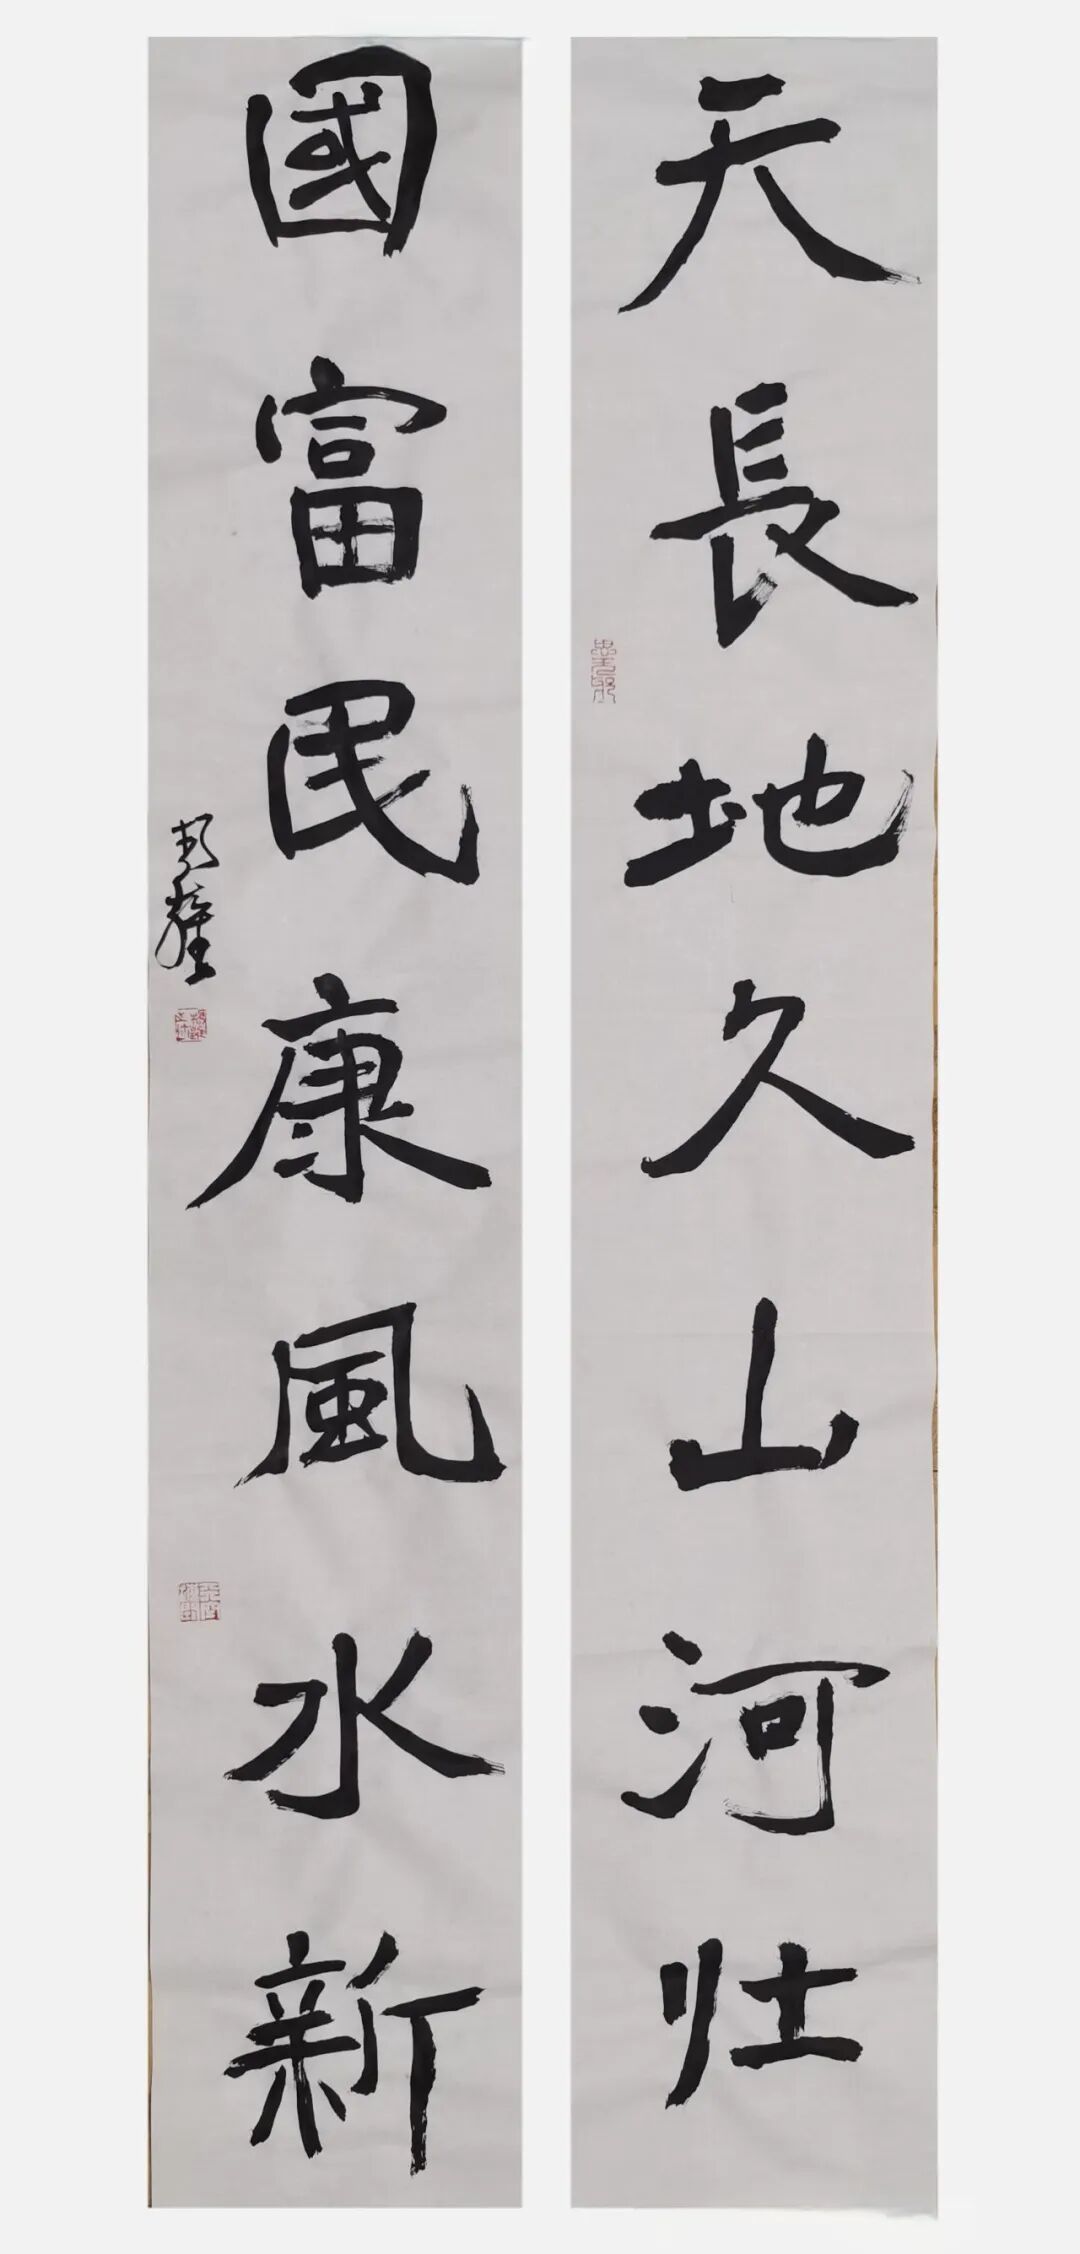 天長地久山河壮
國富民康風水新